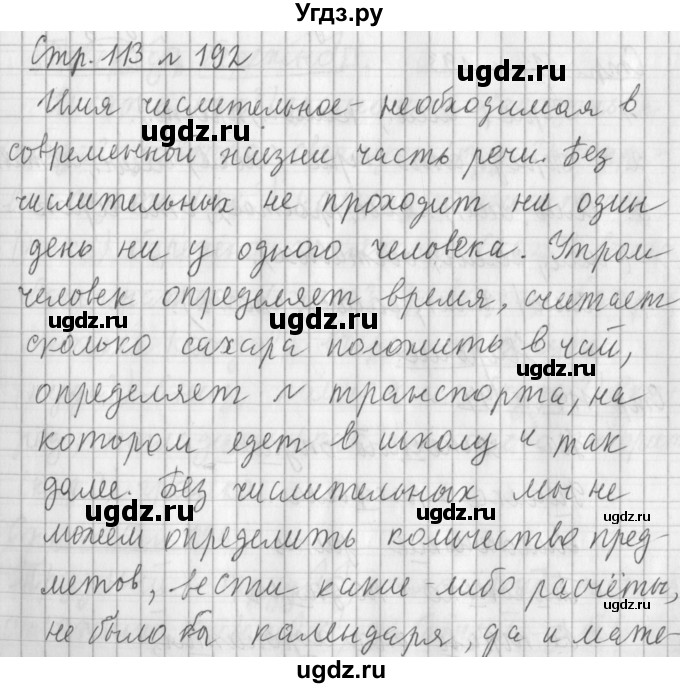 Угдз.ру
Стр. 113 № 192
ugdz.ru
Имя числительное - необходимая в
ugdz.ru
современной жизни часть речи. Без
числительных не проходит ни один
день ни у одного человека. Утром
человек определяет время, считает
ugdz.ru ugdz.ru
сколько сахара положить в чай,
ugdz.ru
определяет № транспорта, на
котором едет в школу и так
далее. Без числительных мы не
ugdz.ru ugdz.ru
можем определить количество пред-
метов, вести какие-либо расчёты,
ugdz.ru
не было бы календаря, да и мате-
ugdz.ru